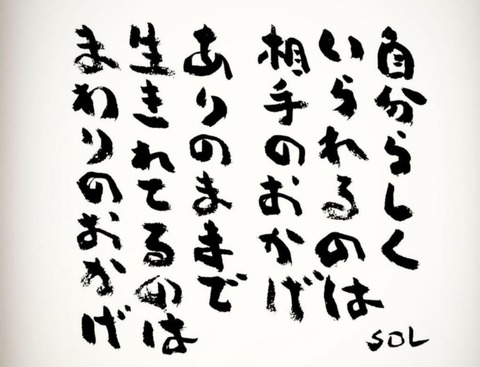 自分らしく
いられるのは
相手のおかげ
ありのままで
生きれてるのは
まわりのおかげ
SOL